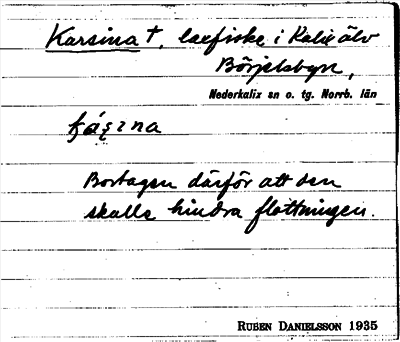 Karsina †, laxfiske i Kalix älv
Börjelsbyn,
Nederkalix sn o. tg. Norrb. län
Bortagen därför att den
skulle hindra flottningen.
RUBEN DANIELSSON 1935